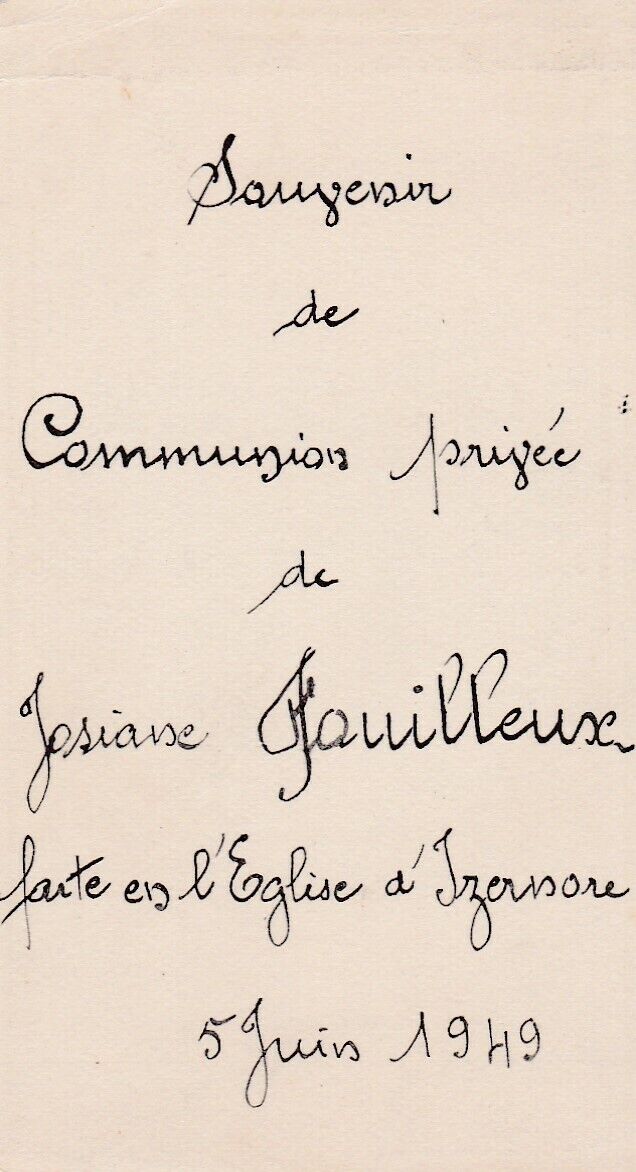 Souvenir
de
Communion privée
de
Josiane Fouilleux
faite en l'Eglise d'Izernore
5 Juin 1949